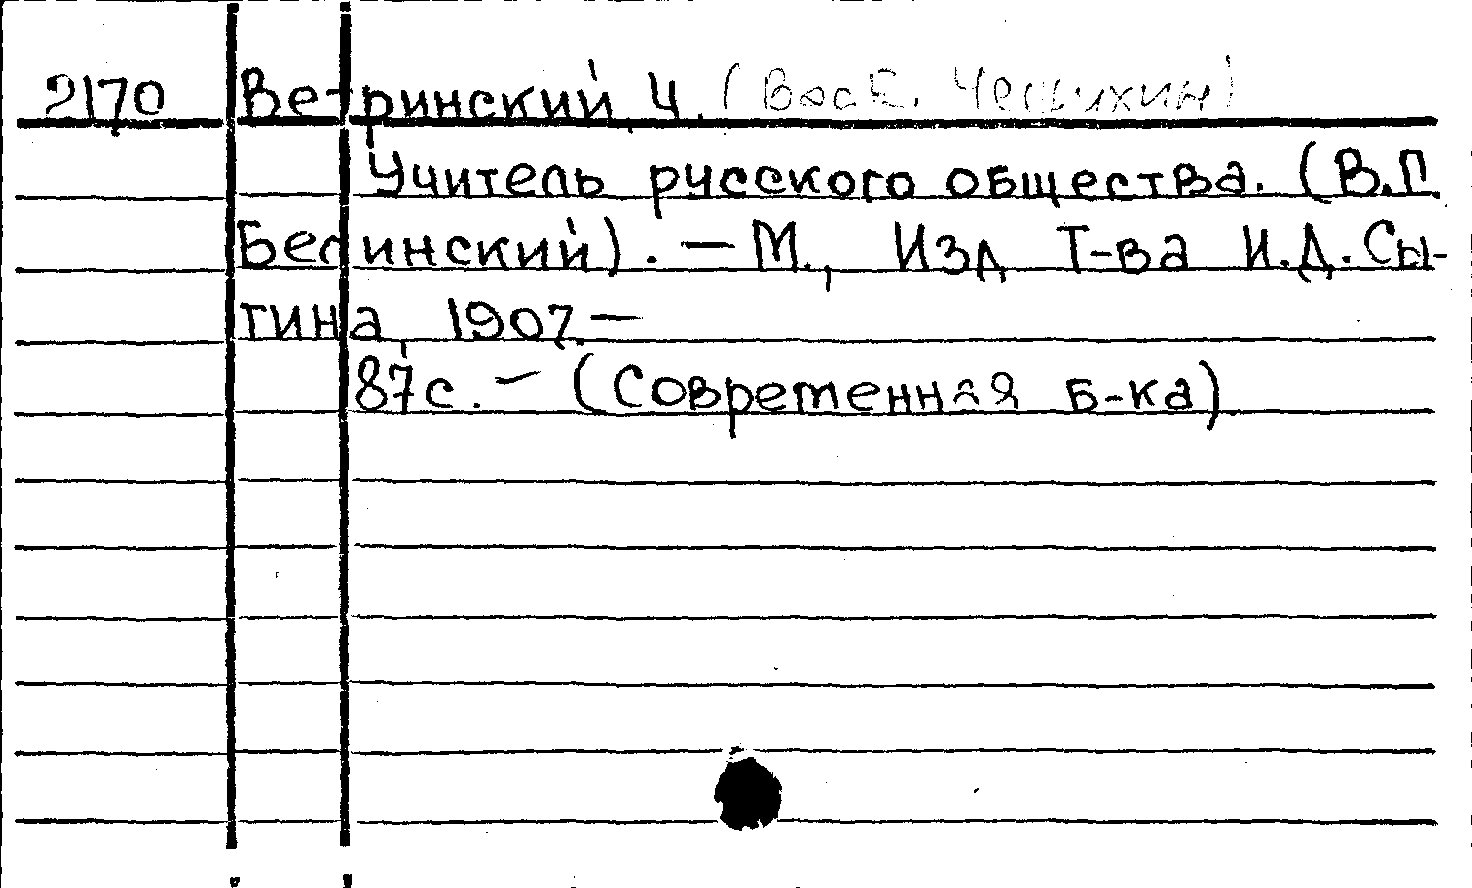 2170 Ветринский Ч. (Вас. Е. Чешихин)
Учитель русского общества. (В.Г.
Белинский). — М., Изд Т-ва И.Д.Сы-
тина, 1907. —
87с. — (Современная б-ка)